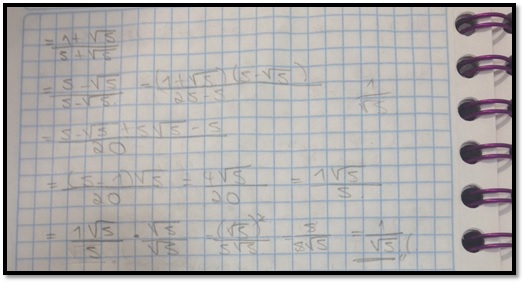 = 1+√5 / 5+√5
= 5-√5 / 5-√5 = (1+√5)(5-√5) / 25-5
1 / √5
= 5-√5+5√5-5 / 20
= (5-1)√5 / 20 = 4√5 / 20 = 1√5 / 5
= 1√5 / 5 · √5 / √5 = (√5)² / 5√5 = 5 / 5√5 = 1 / √5